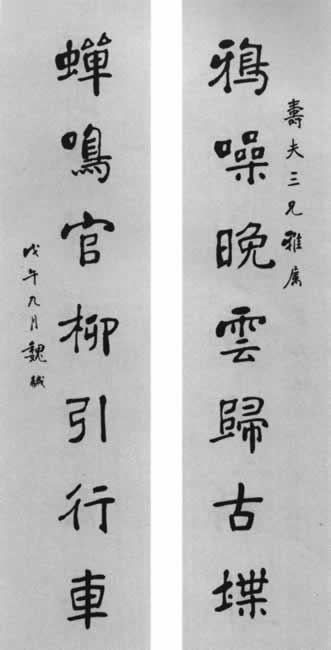 壽夫三兄雅属
鴉噪晚雲歸古堞
蟬鳴官柳引行車
戊午九月魏戫